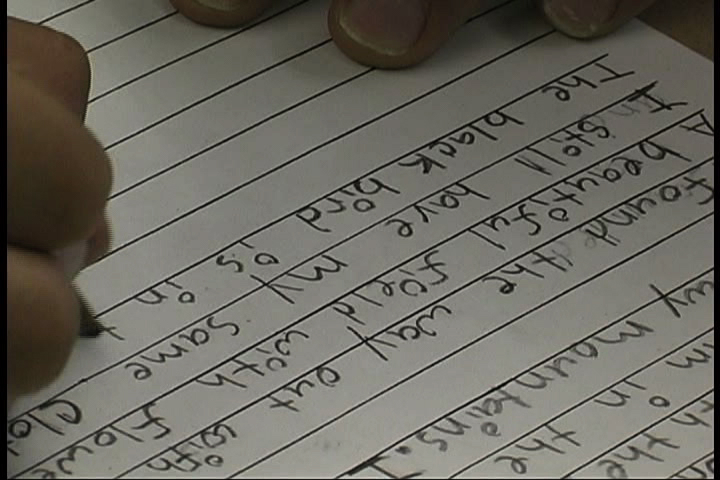 im in the
my mountains. I
found the way out with
A beautiful field with flowe
I still have my same clo
The black bird is in t